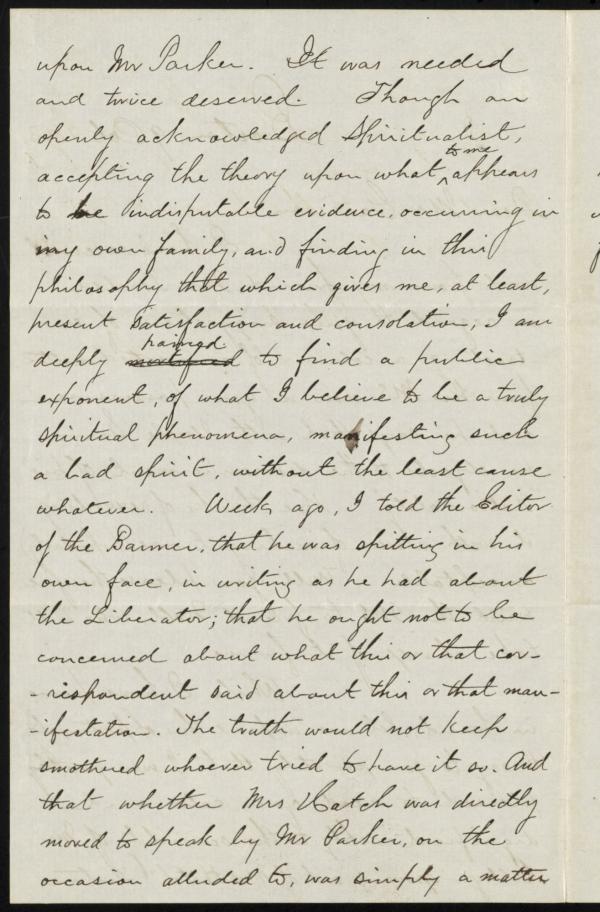 upon Mr Parker. It was needed
and twice deserved. Though an
openly acknowledged Spiritualist,
accepting the theory upon what to me appears
to be indisputable evidence, occurring in
my own family, and finding in this
philosophy that which gives me, at least,
present satisfaction and consolation, I am
deeply mortified pained to find a public
exponent, of what I believe to be a truly
spiritual phenomena, manifesting such
a bad spirit, without the least cause
whatever. Weeks ago, I told the Editor
of the Banner, that he was spitting in his
own face, in writing as he had about
the Liberator; that he ought not to be
concerned about what this or that cor-
-respondent said about this or that man-
-ifestation. The truth would not keep
smothered whoever tried to have it so. And
that whether Mrs Hatch was directly
moved to speak by Mr Parker, on the
occasion alluded to, was simply a matter